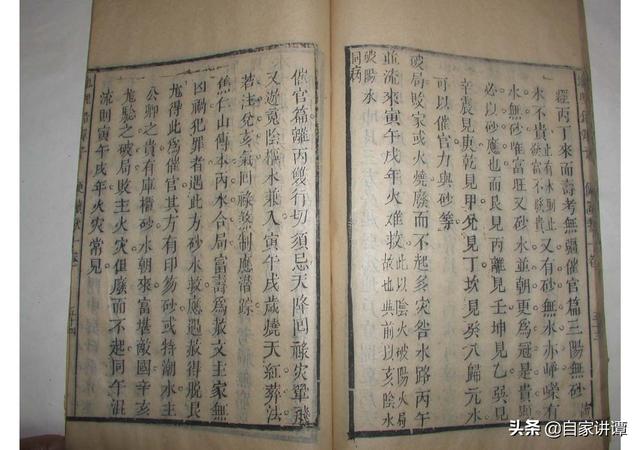 經丙丁來而壽考無疆催官篇三陽無砂
水不貴
又有砂無水亦崢嶸有
水無砂惟富旺又砂水並朝更為冠是貴則
必以砂應也而艮見丙離見壬坤見乙兌見
辛震見庚乾見甲巽見丁坎見癸八歸元水
可以催官力與砂等
破局敗家或火燒廢而不起多災咎水路丙午
並流來寅午戌年火難救
此以陰火破陽火局
也與前以亥陰水
破陽水
同病
催官篇離丙雙行切須忌天降回祿災翬飛
又遊陰撰水兼入寅午戌歲燒天紅葬法
若注兌亥氣回祿煞制應潛踪
焦仁山傳本丙水合局富壽為最文主家無
凶禍犯罪者遇此方砂水救應遇赦得脫艮
尨得此為催官其方有印笏砂或特潮水主
公卿之貴有庫櫃砂水朝來富堪敵國辛亥
尨驗之破局敗主火災但廢而不起同午混
流則寅午戌年火災常見
头条 @自家讲谭